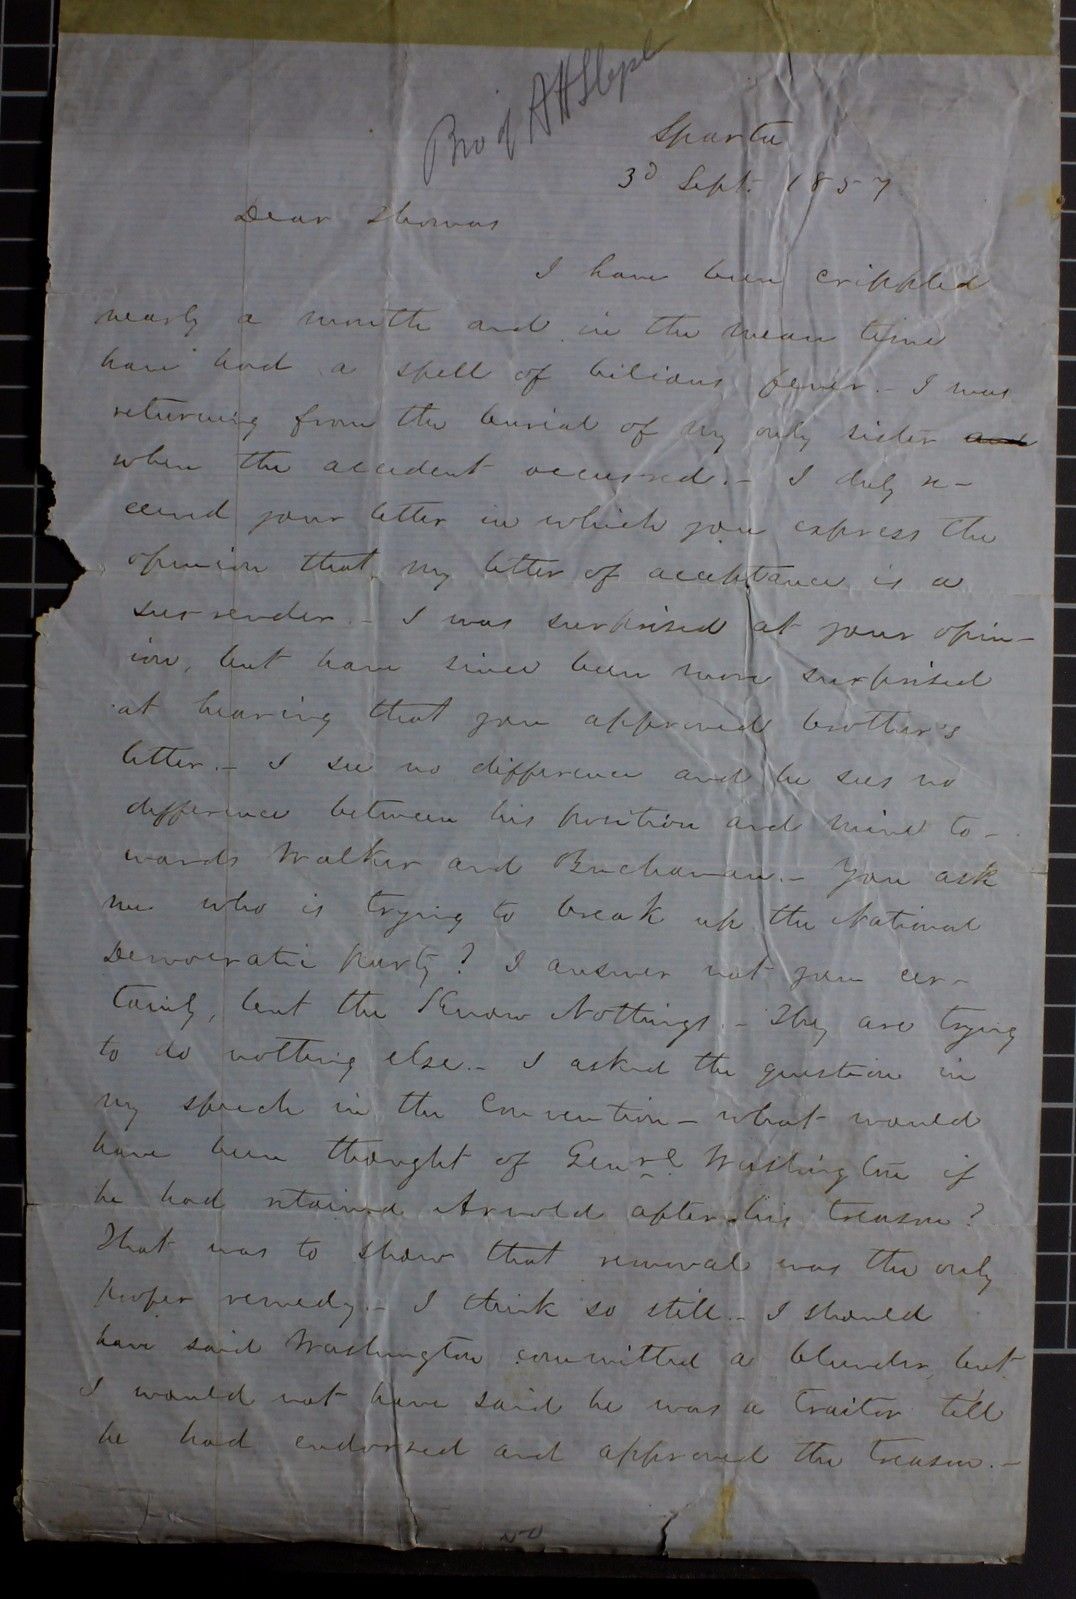 Bro of A H Steph
Sparta
3d Sept. 1857
Dear Thomas
I have been crippled
nearly a month and in the mean time
have had a spell of bilious fever. - I was
returning from the burial of my only sister and
when the accident occurred. - I duly re-
ceived your letter in which you express the
opinion that my letter of acceptance is a
surrender. - I was surprised at your opin-
ion, but have since been more surprised
at hearing that you approved brother's
letter. - I see no difference and he sees no
difference between his position and mine to-
wards Walker and Buchanan. - You ask
me who is trying to break up the National
Democratic party? I answer not you cer-
tainly, but the Know Nothings. - They are trying
to do nothing else. - I asked the question in
my speech in the Convention - what would
have been thought of Genrl Washington if
he had retained Arnold after his treason?
That was to show that removal was the only
proper remedy. - I think so still. - I should
have said Washington committed a blunder, but
I would not have said he was a traitor till
he had endorsed and approved the treason. -